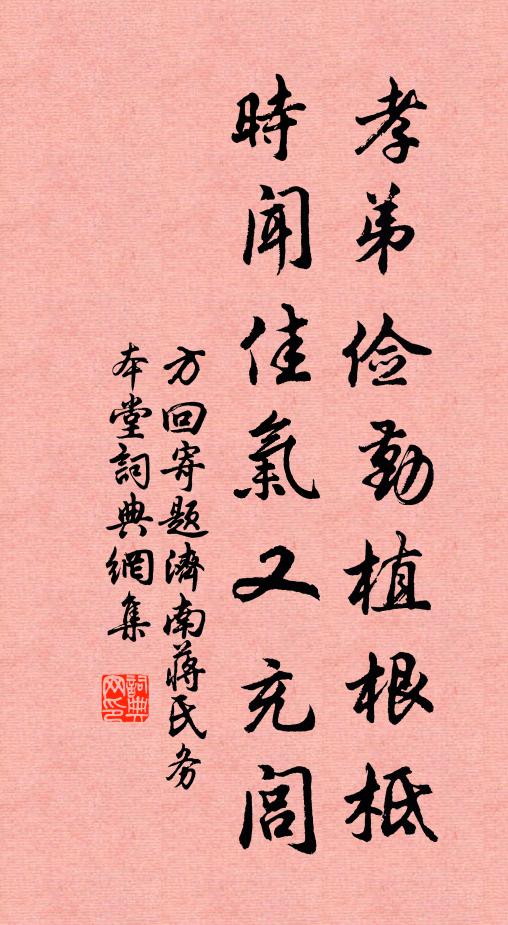 孝弟俭勤植根柢
時闻佳氣又充闾
方回寄題濟南蒋氏务
本堂詞典網集
詞典网印